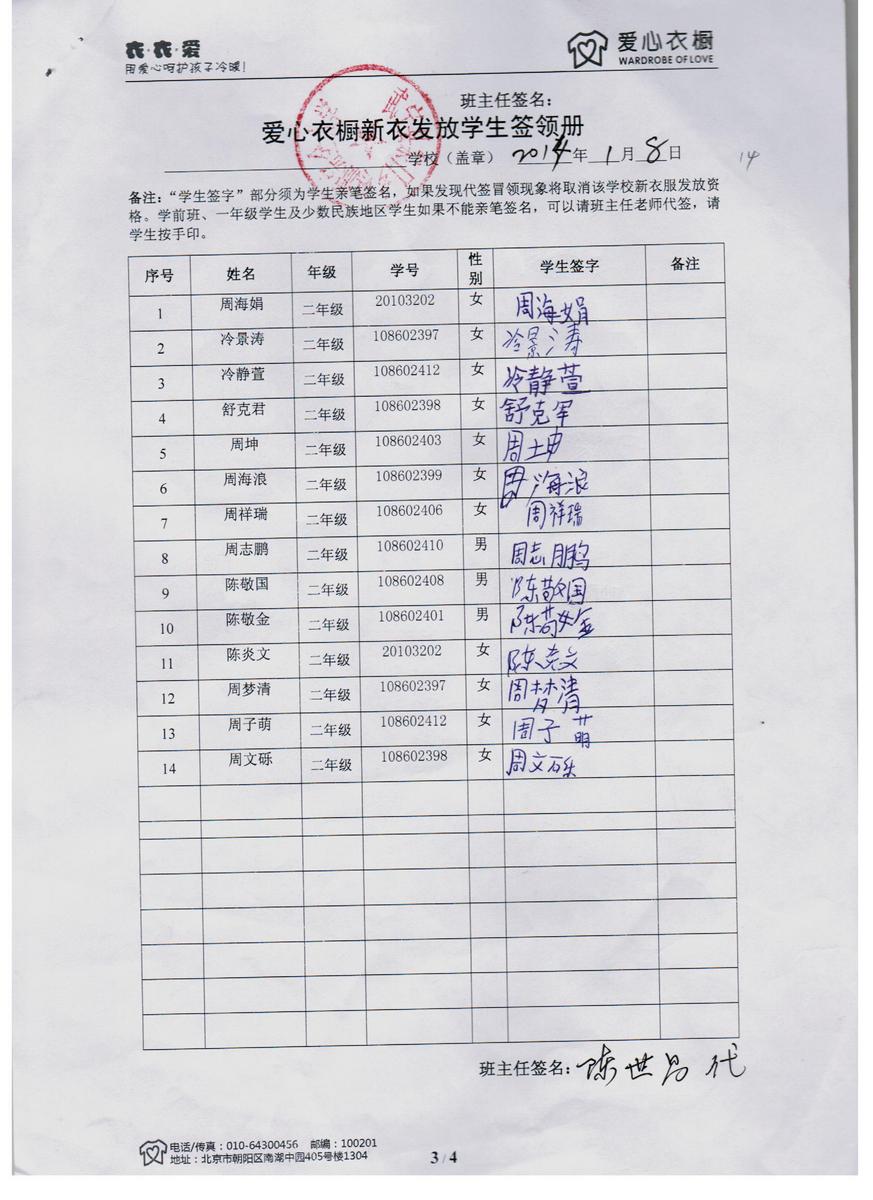 衣·衣·爱
用爱心呵护孩子冷暖!
爱心衣橱
WARDROBE OF LOVE
班主任签名:
爱心衣橱新衣发放学生签领册
学校(盖章) 2014年 1月 8日
14
备注:“学生签字”部分须为学生亲笔签名,如果发现代签冒领现象将取消该学校新衣服发放资
格。学前班、一年级学生及少数民族地区学生如果不能亲笔签名,可以请班主任老师代签,请
学生按手印。
序号 姓名 年级 学号 性别 学生签字 备注
1 周海娟 二年级 20103202 女 周海娟
2 冷景涛 二年级 108602397 女 冷景涛
3 冷静萱 二年级 108602412 女 冷静萱
4 舒克君 二年级 108602398 女 舒克军
5 周坤 二年级 108602403 女 周坤
6 周海浪 二年级 108602399 女 周海浪
7 周祥瑞 二年级 108602406 女 周祥瑞
8 周志鹏 二年级 108602410 男 周志鹏
9 陈敬国 二年级 108602408 男 陈敬国
10 陈敬金 二年级 108602401 男 陈敬金
11 陈炎文 二年级 20103202 女 陈炎文
12 周梦清 二年级 108602397 女 周梦清
13 周子萌 二年级 108602412 女 周子萌
14 周文砾 二年级 108602398 女 周文砾
班主任签名: 陈世昌 代
电话/传真:010-64300456 邮编:100201
地址:北京市朝阳区南湖中园405号楼1304
3 / 4